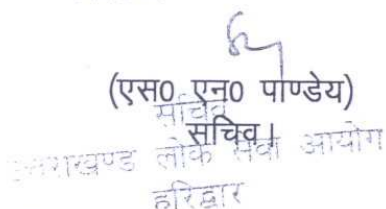 (एस0 एन0 पाण्डेय)
सचिव
सचिव।
उत्तराखण्ड लोक सेवा आयोग
हरिद्वार